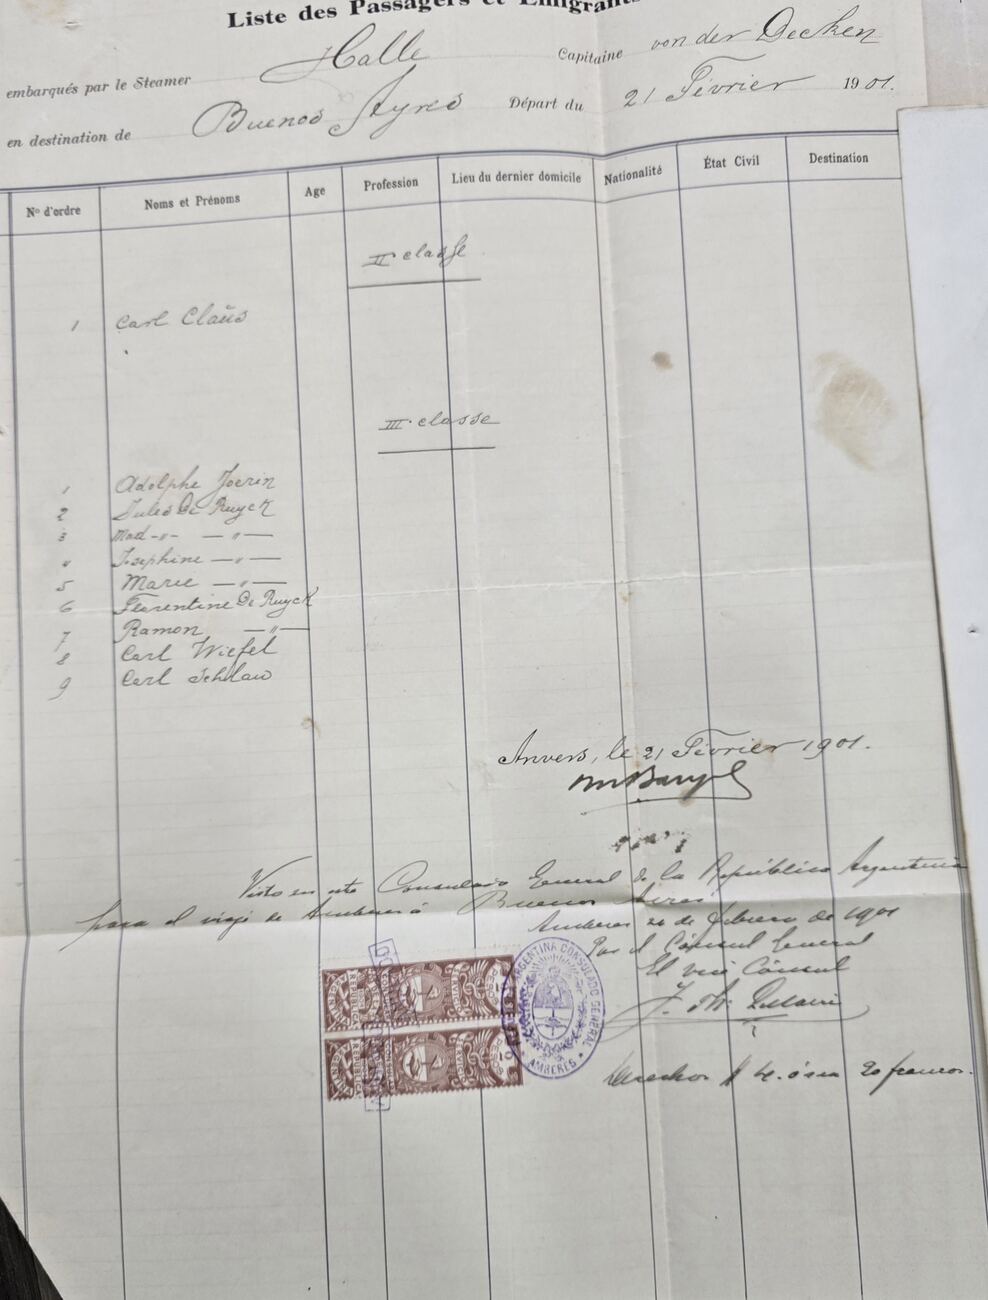 Liste des Passagers et Emigrants
embarqués par le Steamer Halle Capitaine von der Decken
en destination de Buenos Ayres Départ du 21 Février 1901.
N° d'ordre Noms et Prénoms Age Profession Lieu du dernier domicile Nationalité État Civil Destination
II classe
1 Carl Claüs
III. classe
1 Adolphe Joerin
2 Jules De Ruyck
3 Mad -"- —"—
4 Josephine —"—
5 Marie —"—
6 Florentine De Ruyck
7 Ramon —"—
8 Carl Wiefel
9 Carl Schlaw
Anvers, le 21 Février 1901.
Visto en este Consulado General de la República Argentina
para el viaje de Amberes á Buenos Aires
Amberes 20 de febrero de 1901
Por el Cónsul General
El vice Cónsul
ARGENTINA CONSULADO GENERAL
AMBERES
Derechos $ 4. ó sea 20 francos.